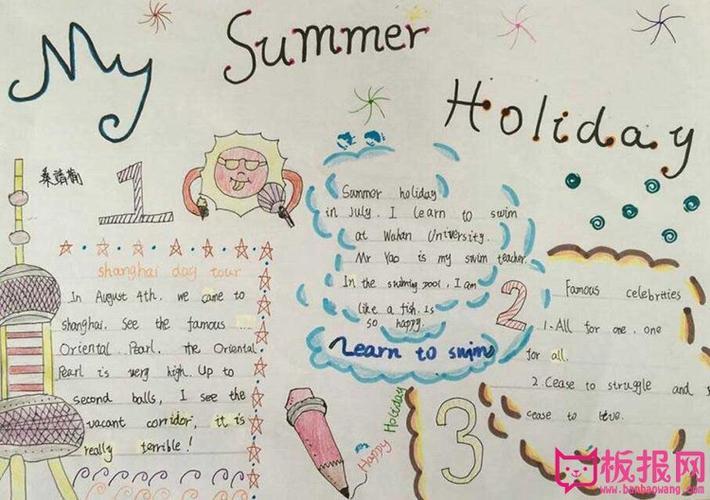 My Summer Holiday
1
shanghai day tour
In August 4th. we came to
shanghai. See the famous ...
Oriental Pearl. The Oriental
Pearl is very high. Up to
second balls, I see the
vacant corridor, it is
really terrible!
Summer holiday
in July. I learn to swim
at Wuhan University.
Mr Yao is my swim teacher.
In the swimming pool, I am
like a fish. Is
so happy.
Learn to swim
2
Famous celebrities
1. All for one, one
for all.
2. Cease to struggle and
cease to live.
3
My Happy Holiday
板报网
www.banbaowang.com